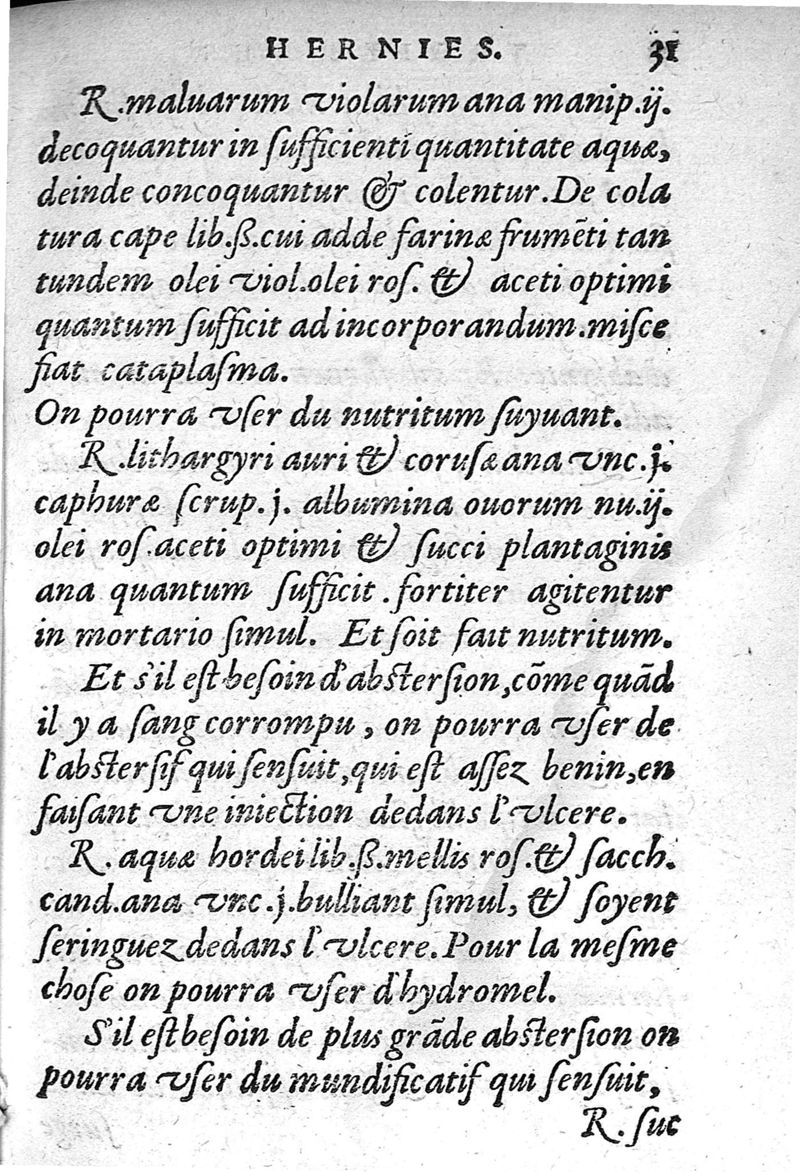 HERNIES. 31
R.maluarum violarum ana manip.ij.
decoquantur in ſufficienti quantitate aquæ,
deinde concoquantur & colentur.De cola
tura cape lib.ß.cui adde farinæ frumēti tan
tundem olei viol.olei roſ. & aceti optimi
quantum ſufficit ad incorporandum.miſce
fiat cataplaſma.
On pourra vſer du nutritum ſuyuant.
R.lithargyri auri & coruſæ ana vnc.j.
caphuræ ſcrup.j. albumina ouorum nu.ij.
olei roſ.aceti optimi & ſucci plantaginis
ana quantum ſufficit .fortiter agitentur
in mortario ſimul. Et ſoit fait nutritum.
Et s'il eſt beſoin d'abſterſion,cōme quãd
il y a ſang corrompu , on pourra vſer de
l'abſterſif qui ſenſuit,qui eſt aſſez benin,en
faiſant vne iniection dedans l'vlcere.
R. aquæ hordei lib.ß.mellis roſ.& ſacch.
cand.ana vnc.j.bulliant ſimul, & ſoyent
ſeringuez dedans l'vlcere.Pour la meſme
choſe on pourra vſer d'hydromel.
S'il eſt beſoin de plus grãde abſterſion on
pourra vſer du mundificatif qui ſenſuit,
R. ſuc